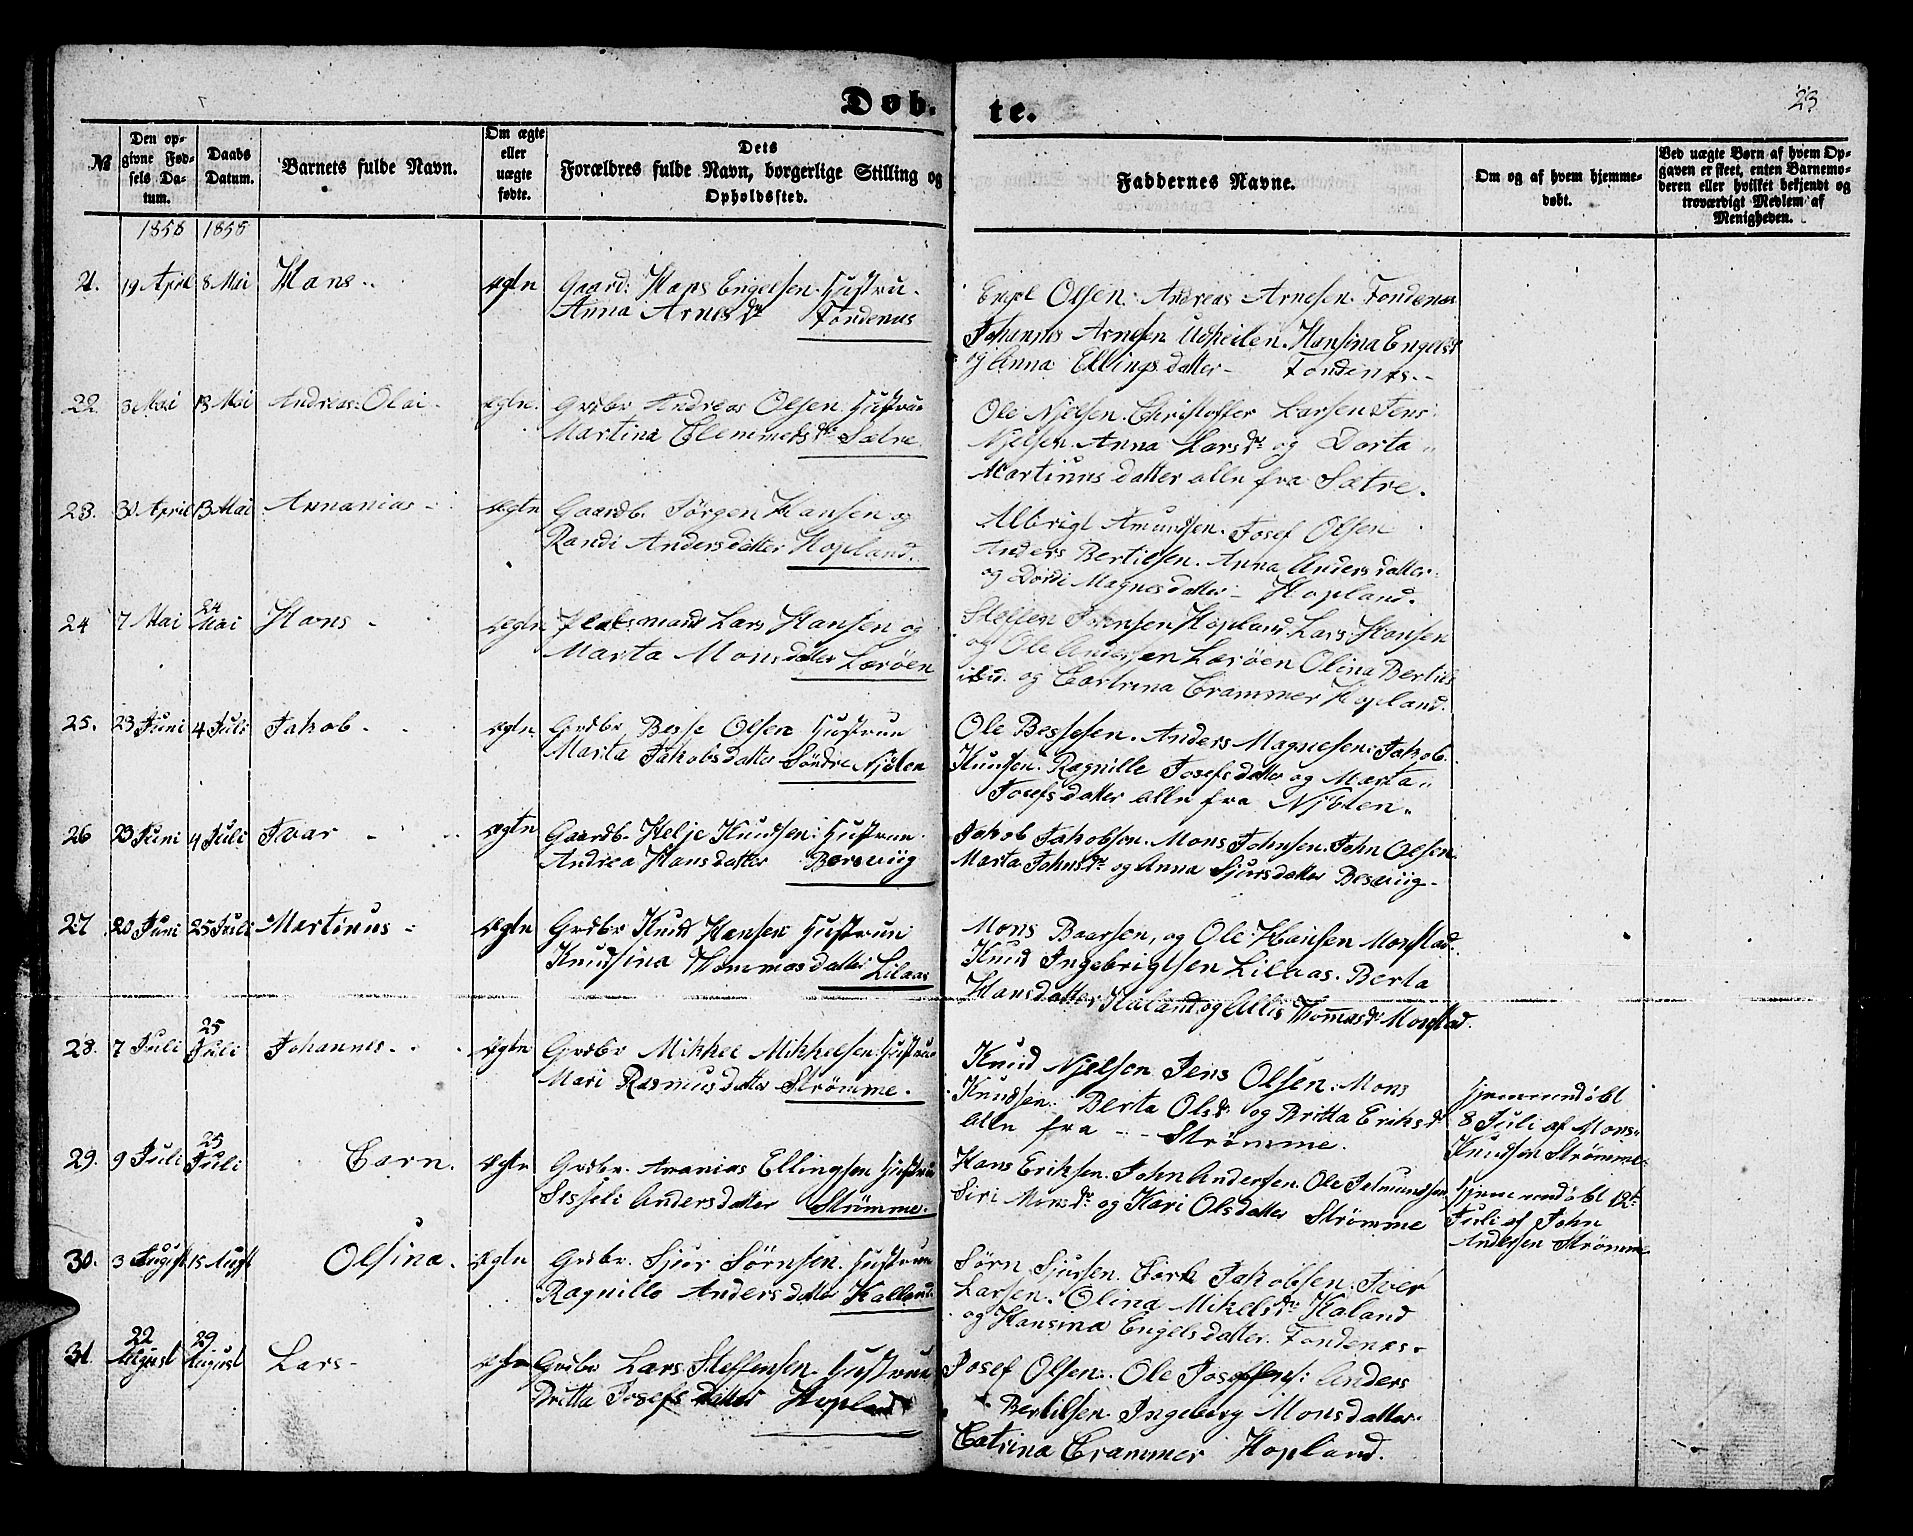 Døb- te. 23
№
Den opgivne Fødsels Datum.
Daabs Datum.
Barnets fulde Navn.
Om ægte eller uægte fødte.
Dets Forældres fulde Navn, borgerlige Stilling og Opholdssted.
Faddernes Navne.
Om og af hvem hjemmedøbt.
Ved uægte Børn af hvem Opgaven er skeet, enten Barnemoderen eller hvilket bekjendt og troværdigt Medlem af Menigheden.
1858 1858
21. 19 April 8 Mai Hans ægte Gaard: Hans Engelsen Hustru
Anna Arnesdr Fondenes
Engel Olsen. Andreas Arnesen Fondenes
Johannes Arnesen Hansina Engelsd
og Anna Ellingsdatter - Fondenes.-
22. 3 Mai 13 Mai Andreas Olai. ægte. Grdbr Andreas Olsen Hustrue
Martina Clemmetsdr Sætre
Ole Njelsen. Christoffer Larsen Jens
Njelsen. Anna Larsdr og Dorta
Martinusdatter alle fra Sætre.
23. 30 April 13 Mai Annanias - ægte Gaardb. Jørgen Hansen og
Randi Andersdatter Hopland.
Albrigt Amundsen. Josef Olsen
Anders Bertilsen. Anna Andersdatter
og Dordi Magnesdatter - Hopland.
24 7 Mai 24 Mai Hans - ægte Pladsmand Lars Hansen og
Marta Monsdatter Lærøen
Steffen Jensen Hopland Lars Hansen
og Ole Andersen Lærøen Olina Bertils
og Cartrina Crammer Hopland.
25. 23 Juni 4 Juli Jakob. ægte Grdbr Besse Olsen Hustrue
Marta Jakobsdatter Söndre Njöten
Ole Bessesen. Anders Magnesen. Jakob
Knudsen. Ragnille Josefsdatter og Marta
Josefsdatter alle fra Njöten.
26 23 Juni 4 Juli Ivar - ægte Gaardb. Helje Knudsen: Hustrue
Andrea Hansdatter Bereviig
Jakob Jakobsen. Mons Johnsen. John Olsen.
Marta Johnsdr og Anna Sjursdatter Beseviig-
27 20 Juni 25 Juli Martinus - ægte Grdbr Knud Hansen Hustrue
Knudsina Thommasdatter Lilaas
Mons Baarsen, og Ole Hansen Monstad.
Knud Ingebrigtsen Lilaas. Berta
Hansdatter Haland og Allis Thomasdr Monstad.
28. 7 Juli 25 Juli Johannes - ægte Grdbr Mikkel Mikkelsen Hustrue
Mari Rasmusdatter Strømme.
Knud Njelson Jens Olsen. Mons
Knudsen. Berta Olsdr og Britta Eriksd
alle fra - - Strømme.
hjemmedøbt
8 Juli af Mons
Knudsen Strømme
29. 9 Juli 25 Juli Carn. ægte Grdbr. Ananias Ellingsen Hustrue
Sisseli Andersdatter Strømme.
Hans Eriksen. John Andersen. Ole
Siri Monsdr og Kari Olsdatter Strømme
hjemmedøbt 12t
Juli af John
Andersen Strømme
30. 3 August 15 Augst Olsina. ægte Grdbr. Sjur Sörnsen. Hustrue
Ragnille Andersdatter Halland
Sörn Sjursen. Jakobsen. Iver
Larsen. Olina Mikelsdr Haland
og Hansina Engelsdatter Fondenes.
31 22 August 29 August Lars - ægte Grdbr Lars Steffensen Hustrue
Britta Josefsdatter Hopland
Josef Olsen. Ole Josefsen: Anders
Bertilsen. Ingeborg Monsdatter.
Catrina Crammer Hopland.